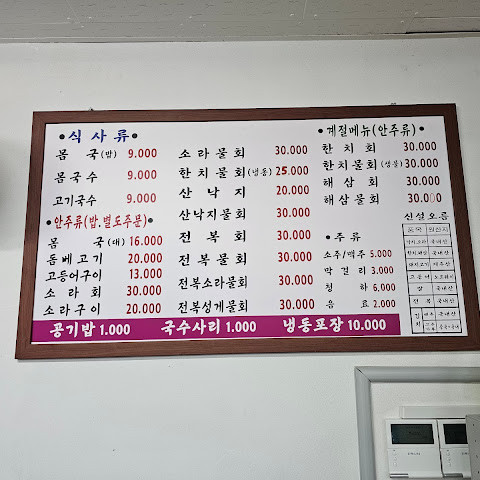 •식 사 류•
몸 국(밥) 9.000
몸국수 9.000
고기국수 9.000
•안주류(밥.별도주문)
몸 국(대) 16.000
돔베고기 20.000
고등어구이 13.000
소 라 회 30.000
소라구이 20.000
소라물회 30.000
한치물회(냉동) 25.000
산 낙 지 20.000
산낙지물회 30.000
전 복 회 30.000
전복물회 30.000
전복소라물회 30.000
전복성게물회 30.000
•계절메뉴(안주류)•
한 치 회 30.000
한치물회(생물) 30.000
해 삼 회 30.000
해삼물회 30.000
신설오름
•주 류
소주/맥주 5.000
막 걸 리 3.000
청 하 6.000
음 료 2.000
품목 원산지
국내산
국내산
제주산
고등어
쌀 국내산
전 복 국내산
김치 배추 국내산
공기밥 1.000 국수사리 1.000 냉동포장 10.000